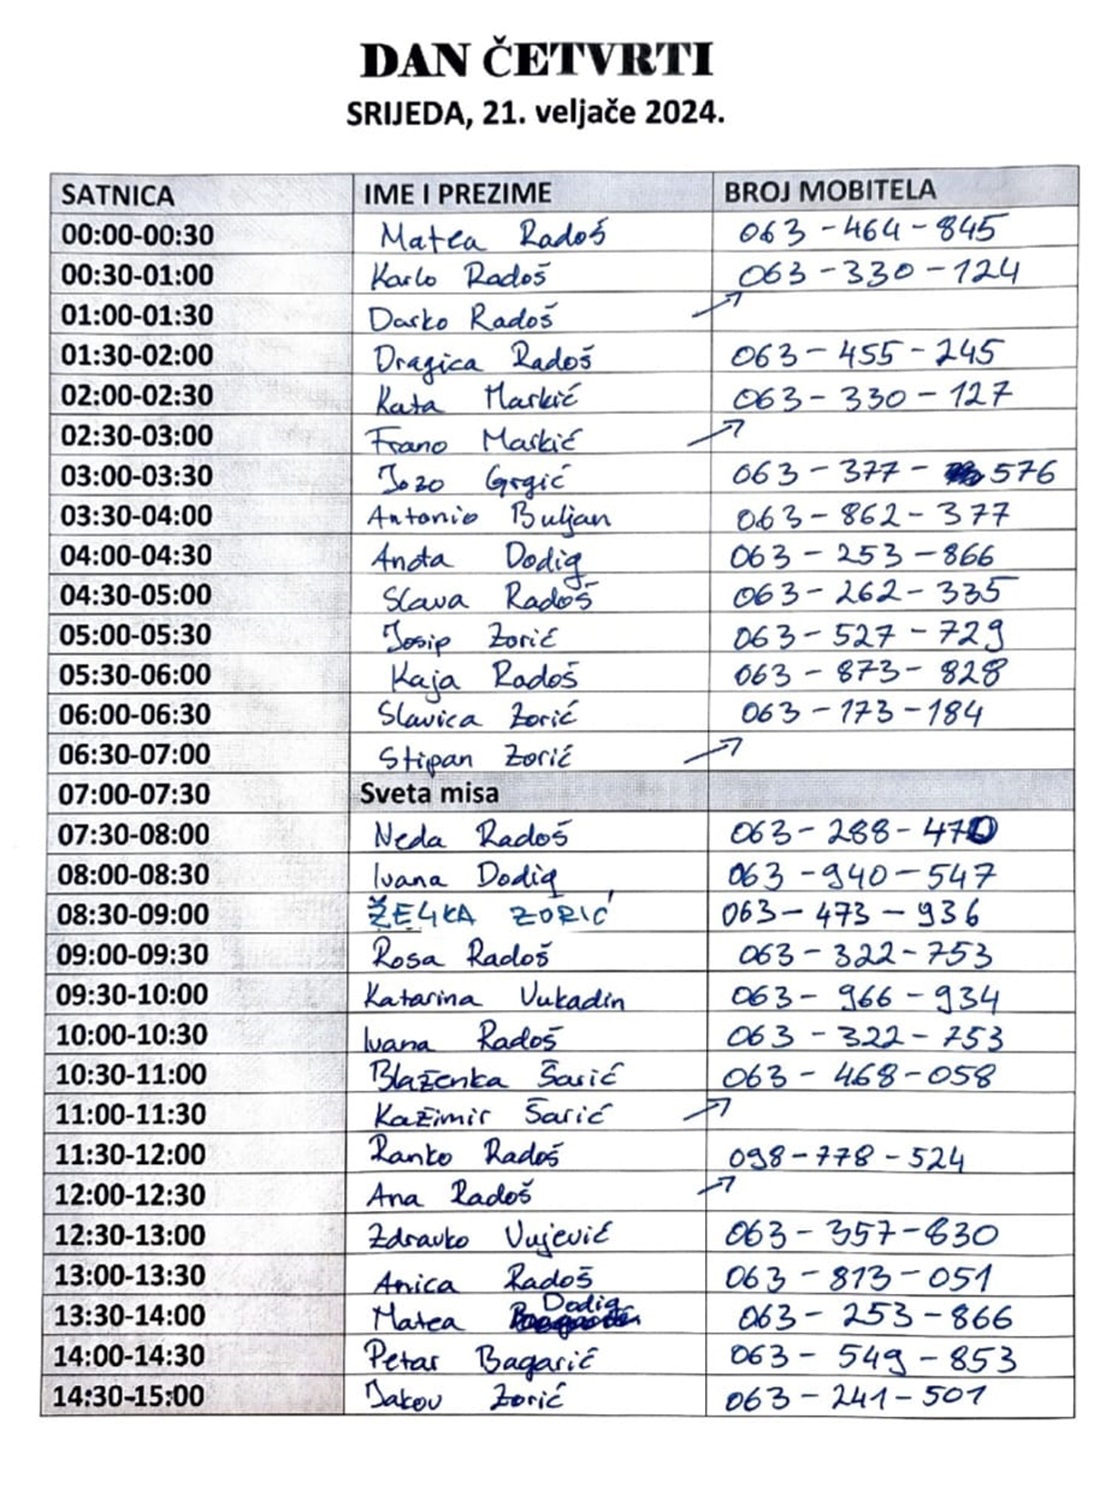 DAN ČETVRTI
SRIJEDA, 21. veljače 2024.
SATNICA IME I PREZIME BROJ MOBITELA
00:00-00:30 Matea Radoš 063-464-845
00:30-01:00 Karlo Radoš 063-330-124
01:00-01:30 Darko Radoš
01:30-02:00 Dragica Radoš 063-455-245
02:00-02:30 Kata Markić 063-330-127
02:30-03:00 Frano Markić
03:00-03:30 Jozo Grgić 063-377-576
03:30-04:00 Antonio Buljan 063-862-377
04:00-04:30 Anđa Dodig 063-253-866
04:30-05:00 Slava Radoš 063-262-335
05:00-05:30 Josip Zorić 063-527-729
05:30-06:00 Kaja Radoš 063-873-828
06:00-06:30 Slavica Zorić 063-173-184
06:30-07:00 Stipan Zorić
07:00-07:30 Sveta misa
07:30-08:00 Neda Radoš 063-288-470
08:00-08:30 Ivana Dodig 063-940-547
08:30-09:00 ŽELJKA ZORIĆ 063-473-936
09:00-09:30 Rosa Radoš 063-322-753
09:30-10:00 Katarina Vukadin 063-966-934
10:00-10:30 Ivana Radoš 063-322-753
10:30-11:00 Blaženka Šarić 063-468-058
11:00-11:30 Kažimir Šarić
11:30-12:00 Ranko Radoš 098-778-524
12:00-12:30 Ana Radoš
12:30-13:00 Zdravko Vujević 063-357-630
13:00-13:30 Anica Radoš 063-813-051
13:30-14:00 Matea Dodig 063-253-866
14:00-14:30 Petar Bagarić 063-549-853
14:30-15:00 Jakov Zorić 063-241-501